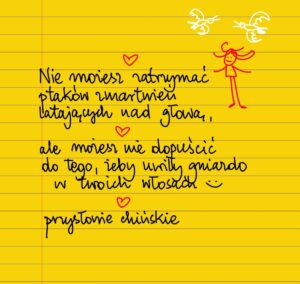 Nie możesz zatrzymać
ptaków zmartwień
latających nad głową,
ale możesz nie dopuścić
do tego, żeby uwiły gniazdo
w twoich włosach
przysłowie chińskie